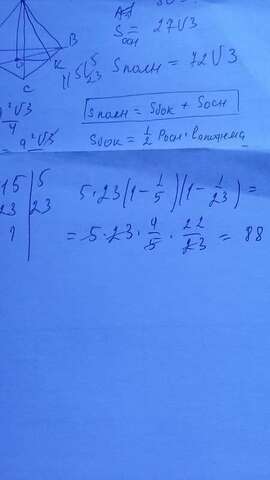 Sосн = 27√3
B
K
C
115 | 5
23
Sполн = 72√3
a²√3
4
Sполн = Sбок + Sосн
= a²√3
Sбок = 1/2 Pосн · lапофема
115 | 5
23 | 23
1
5·23(1-1/5)(1-1/23) =
= 5·23·4/5·22/23 = 88